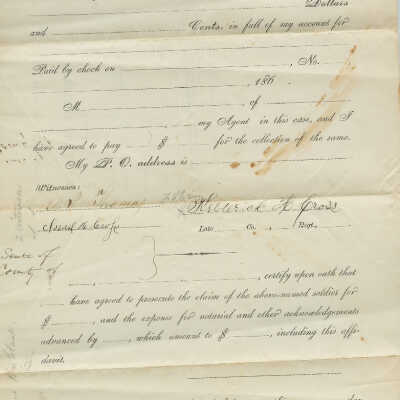 Dollars
and Cents, in full of my account for
Paid by check on , No.
, 186
M. of
my Agent in this case, and I
have agreed to pay $ for the collection of the same.
My P. O. address is
Witnesses:
Thomas
Frederick A. Cross
Late Co. , Regt.
State of
County of
, certify upon oath that
have agreed to prosecute the claim of the above-named soldier for
$ , and the expense for notarial and other acknowledgements
advanced by , which amounts to $ , including this affi-
davit.